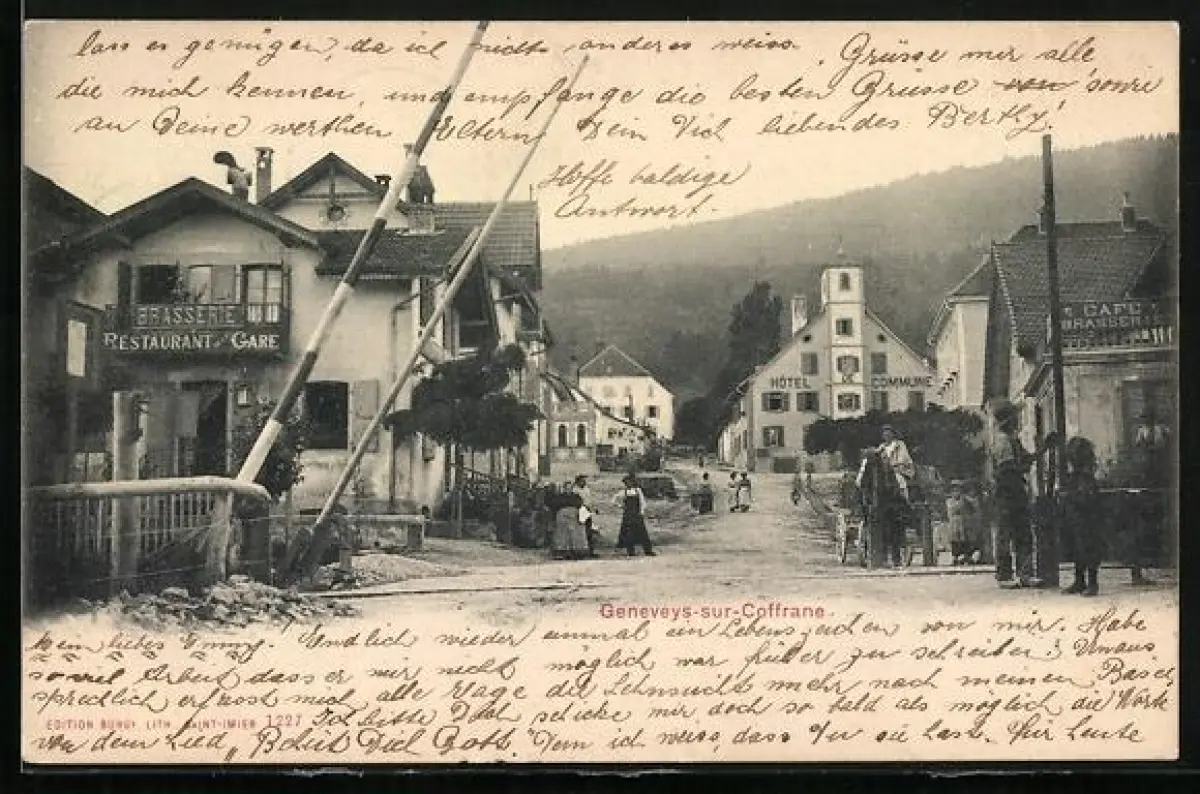 lass es genügen, da ich nichts anderes weiss. Grüsse mir alle
die mich kennen, und empfange die besten Grüsse von sowie
an Deine werthen Eltern, Dein Dich liebendes Berthy!
Hoffe baldige
Antwort.
BRASSERIE
RESTAURANT GARE
HÔTEL COMMUNE
CAFÉ
BRASSERIE
Geneveys-sur-Coffrane
Mein liebes Emmy! Endlich wieder einmal ein Lebenszeichen von mir. Habe
soviel Arbeit dass er mir nicht möglich war früher zu schreiben! Unaus
sprechlich erfasst mich alle Tage die Sehnsucht mehr nach meinem Basel,
EDITION BURGY LITH. SAINT-IMIER 1227
Ich bitte Dich schicke mir doch so bald als möglich die Worte
von dem Lied „Behüt Dich Gott." Denn ich weiss, dass Du sie hast. Für heute